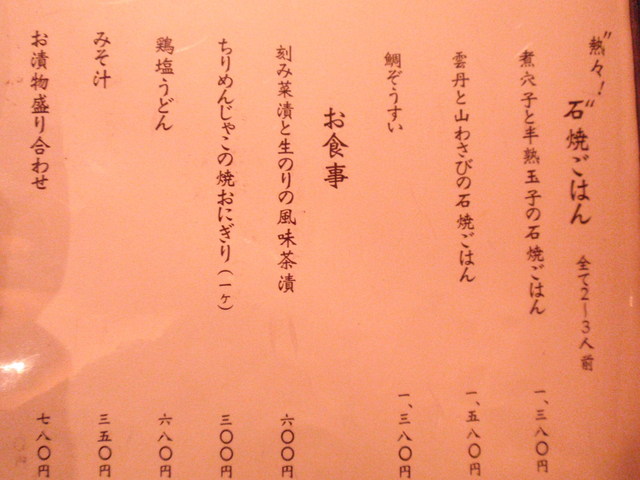 "熱々!"石焼ごはん 全て2~3人前
煮穴子と半熟玉子の石焼ごはん 一、三八〇円
雲丹と山わさびの石焼ごはん 一、五八〇円
鯛ぞうすい 一、三八〇円
お食事
刻み菜漬と生のりの風味茶漬 六〇〇円
ちりめんじゃこの焼おにぎり(一ヶ) 三〇〇円
鶏塩うどん 六八〇円
みそ汁 三五〇円
お漬物盛り合わせ 七八〇円